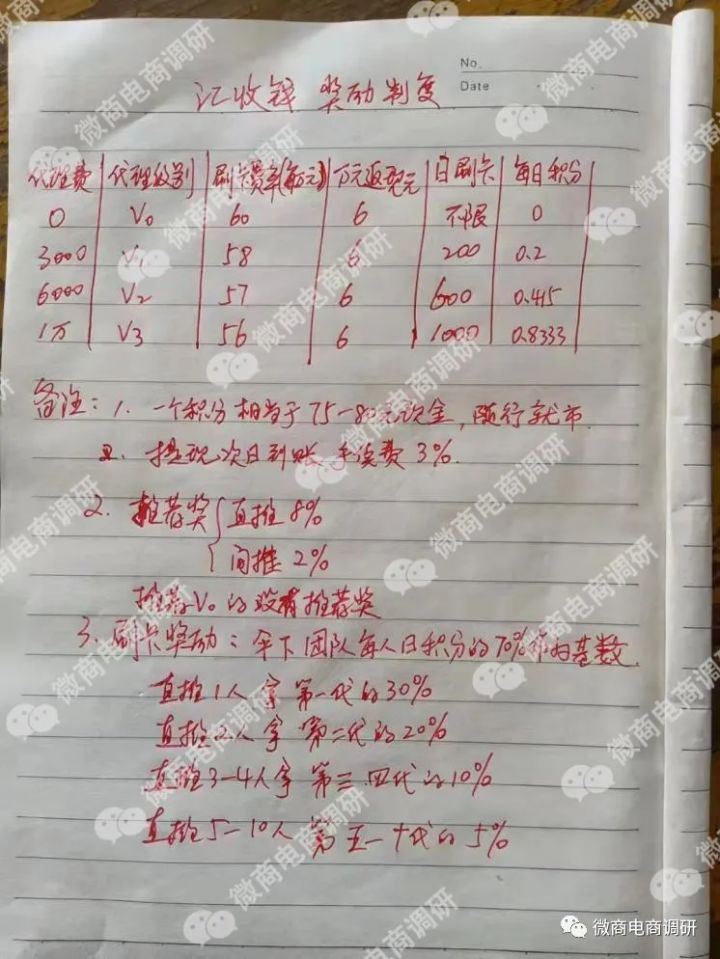 No.
Date
汇收钱 奖励制度
代理费 代理级别 刷卡费率(每万元) 万元返现元 日刷卡 每日积分
0 V0 60 6 不限 0
3000 V1 58 6 200 0.2
6000 V2 57 6 600 0.415
1万 V3 56 6 1000 0.8333
备注: 1. 一个积分相当于75-80元现金,随行就市
提现次日到账 手续费3%.
2. 推荐奖 直推8%
间推2%
推荐V0的没有推荐奖
3. 刷卡奖励: 伞下团队每人日积分的70%作为基数.
直推1人拿 第一代的30%
直推2人拿 第二代的20%
直推3-4人拿 第三.四代的10%
直推5-10人 第五-十代的5%
微商电商调研